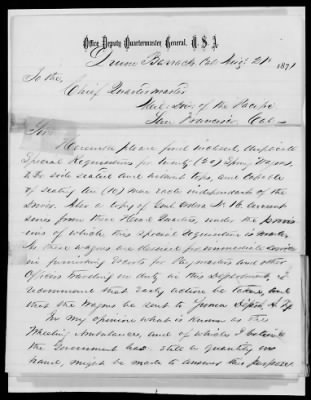 Office Deputy Quartermaster General, U.S.A.
Drum Barracks Cal Aug. 21st 1871
To the,
Chief Quartermaster
Mil. Div. of the Pacific
San Francisco Cal
Sir:
Herewith please find enclosed duplicate
Special Requisitions for twenty (20) Spring Wagons,
to be side seated and have tops, and capable
of seating ten (10) men each independent of the
driver. Also a copy of Genl Orders No 16 current
series from these Head Quarters, under the provis-
ions of which this Special Requisition is made.
As these wagons are desired for immediate service
in furnishing Escorts for Paymasters and other
Officers traveling on duty in this Department, I
recommend that early action be taken, and
that the Wagons be sent to Yuma Depot, A.T.
In my opinion what is known as the
Wheeling Ambulances, and of which I believe
the Government has still a quantity on
hand, might be made to answer this purpose